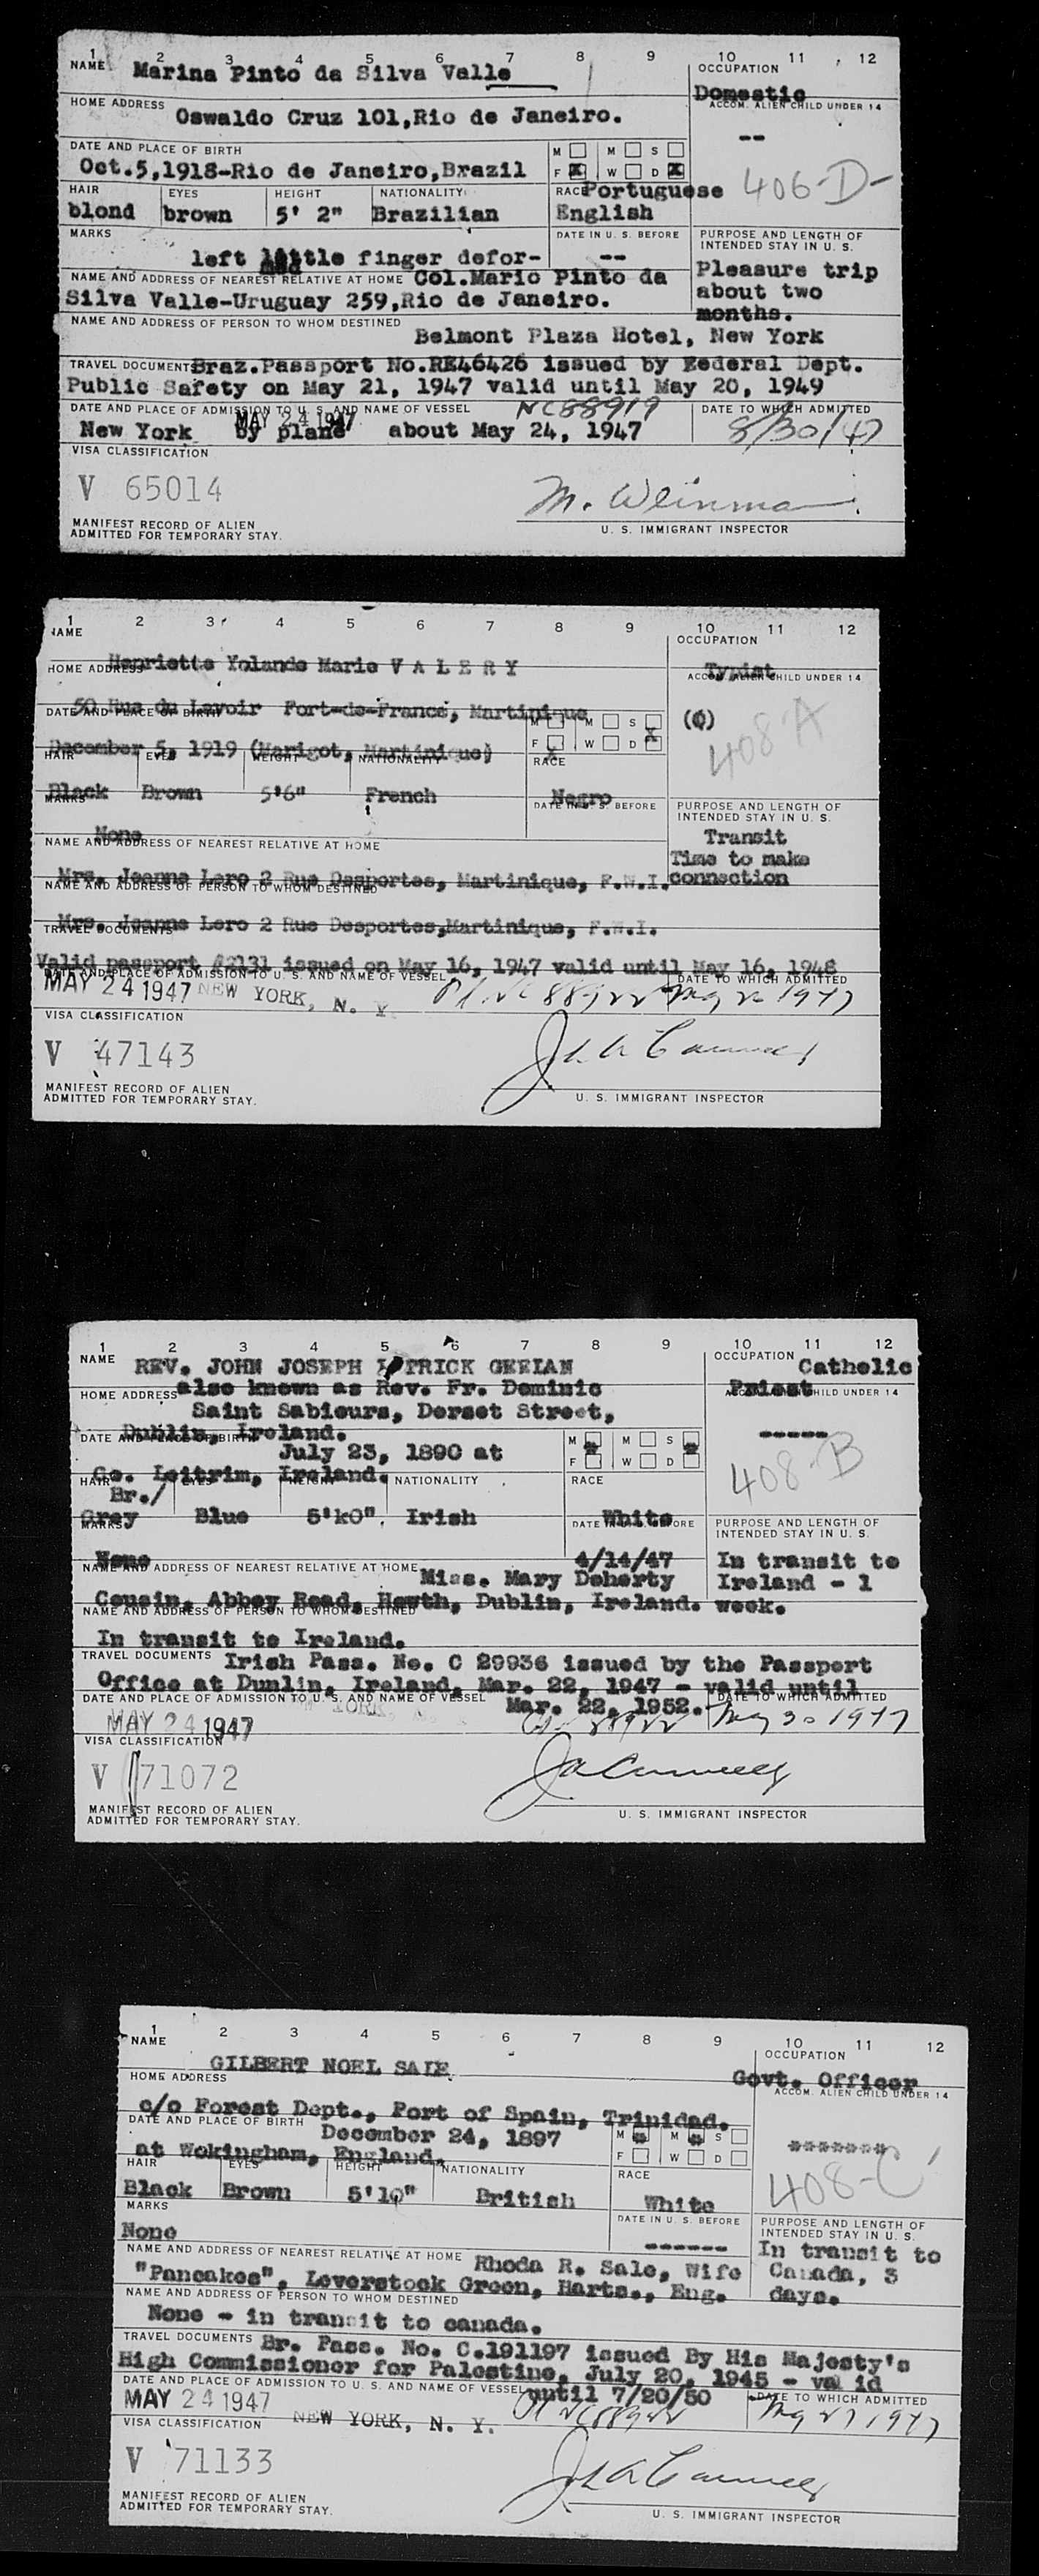 1 2 3 4 5 6 7 8 9 10 11 12
NAME Marina Pinto da Silva Valle
OCCUPATION
Domestic
HOME ADDRESS Oswaldo Cruz 101,Rio de Janeiro.
ACCOM. ALIEN CHILD UNDER 14
--
DATE AND PLACE OF BIRTH
Oct.5,1918-Rio de Janeiro,Brazil
M M S
F X W D X
406-D-
HAIR EYES HEIGHT NATIONALITY RACE Portuguese
blond brown 5' 2" Brazilian English
MARKS DATE IN U. S. BEFORE PURPOSE AND LENGTH OF
INTENDED STAY IN U. S.
left little finger defor-
med
--
Pleasure trip
about two
months.
NAME AND ADDRESS OF NEAREST RELATIVE AT HOME Col.Mario Pinto da
Silva Valle-Uruguay 259,Rio de Janeiro.
NAME AND ADDRESS OF PERSON TO WHOM DESTINED
Belmont Plaza Hotel, New York
TRAVEL DOCUMENT Braz.Passport No.RE46426 issued by Federal Dept.
Public Safety on May 21, 1947 valid until May 20, 1949
DATE AND PLACE OF ADMISSION TO U. S. AND NAME OF VESSEL NC88919 DATE TO WHICH ADMITTED
MAY 24 1947
New York by plane about May 24, 1947 8/30/47
VISA CLASSIFICATION
V 65014
M. Weinman
MANIFEST RECORD OF ALIEN
ADMITTED FOR TEMPORARY STAY.
U. S. IMMIGRANT INSPECTOR
1 2 3 4 5 6 7 8 9 10 11 12
NAME OCCUPATION
Henriette Yolande Marie V A L E R Y Typist
HOME ADDRESS ACCOM. ALIEN CHILD UNDER 14
50 Rue du Lavoir Fort-de-France, Martinique (0)
DATE AND PLACE OF BIRTH
M M S X
F X W D
408-A
December 5, 1919 (Marigot, Martinique)
HAIR EYES HEIGHT NATIONALITY RACE
Black Brown 5'6" French Negro
MARKS DATE IN U. S. BEFORE PURPOSE AND LENGTH OF
INTENDED STAY IN U. S.
None
Transit
Time to make
connection
NAME AND ADDRESS OF NEAREST RELATIVE AT HOME
Mrs. Jeanne Lero 2 Rue Desportes, Martinique, F.W.I.
NAME AND ADDRESS OF PERSON TO WHOM DESTINED
Mrs. Jeanne Lero 2 Rue Desportes,Martinique, F.W.I.
TRAVEL DOCUMENTS
Valid passport #2131 issued on May 16, 1947 valid until May 16, 1948
DATE AND PLACE OF ADMISSION TO U. S. AND NAME OF VESSEL DATE TO WHICH ADMITTED
MAY 24 1947 NEW YORK, N. Y. NC 88922 1947
VISA CLASSIFICATION
V 47143
MANIFEST RECORD OF ALIEN
ADMITTED FOR TEMPORARY STAY.
U. S. IMMIGRANT INSPECTOR
1 2 3 4 5 6 7 8 9 10 11 12
NAME REV. JOHN JOSEPH PATRICK GEELAN
OCCUPATION Catholic
Priest
also known as Rev. Fr. Dominic
HOME ADDRESS ACCOM. ALIEN CHILD UNDER 14
Saint Sabiours, Dorset Street,
Dublin, Ireland.
-----
DATE AND PLACE OF BIRTH
July 23, 1890 at
Co. Leitrim, Ireland.
M M S
F W D
408-B
HAIR EYES HEIGHT NATIONALITY RACE
Br./
Grey Blue 5'k0". Irish White
MARKS DATE IN U. S. BEFORE PURPOSE AND LENGTH OF
INTENDED STAY IN U. S.
None 4/14/47
In transit to
Ireland - 1
week.
NAME AND ADDRESS OF NEAREST RELATIVE AT HOME Miss. Mary Doherty
Cousin, Abbey Road, Howth, Dublin, Ireland.
NAME AND ADDRESS OF PERSON TO WHOM DESTINED
In transit to Ireland.
TRAVEL DOCUMENTS Irish Pass. No. C 29936 issued by the Passport
Office at Dunlin, Ireland, Mar. 22, 1947 - valid until
DATE AND PLACE OF ADMISSION TO U. S. AND NAME OF VESSEL Mar. 22, 1952. DATE TO WHICH ADMITTED
MAY 24 1947 YORK, 88922 May 30 1947
VISA CLASSIFICATION
V 71072
MANIFEST RECORD OF ALIEN
ADMITTED FOR TEMPORARY STAY.
U. S. IMMIGRANT INSPECTOR
1 2 3 4 5 6 7 8 9 10 11 12
NAME OCCUPATION
GILBERT NOEL SALE Govt. Officer
HOME ADDRESS ACCOM. ALIEN CHILD UNDER 14
c/o Forest Dept., Port of Spain, Trinidad.
DATE AND PLACE OF BIRTH December 24, 1897
at Wokingham, England.
M M S
F W D
*******
408-C
HAIR EYES HEIGHT NATIONALITY RACE
Black Brown 5'10" British White
MARKS DATE IN U. S. BEFORE PURPOSE AND LENGTH OF
INTENDED STAY IN U. S.
None ------
In transit to
Canada, 3
days.
NAME AND ADDRESS OF NEAREST RELATIVE AT HOME Rhoda R. Sale, Wife
"Pancakes", Leverstock Green, Harts., Eng.
NAME AND ADDRESS OF PERSON TO WHOM DESTINED
None - in transit to canada.
TRAVEL DOCUMENTS Br. Pass. No. C.191197 issued By His Majesty's
High Commissioner for Palestine, July 20, 1945 - val id
DATE AND PLACE OF ADMISSION TO U. S. AND NAME OF VESSEL until 7/20/50 DATE TO WHICH ADMITTED
MAY 24 1947 NEW YORK, N. Y. NC88922 May 27 1947
VISA CLASSIFICATION
V 71133
MANIFEST RECORD OF ALIEN
ADMITTED FOR TEMPORARY STAY.
U. S. IMMIGRANT INSPECTOR